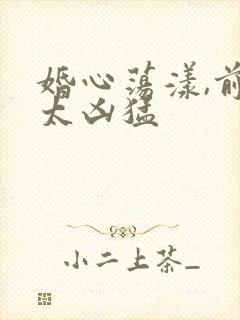 婚心荡漾,前
太凶猛
小二上茶_